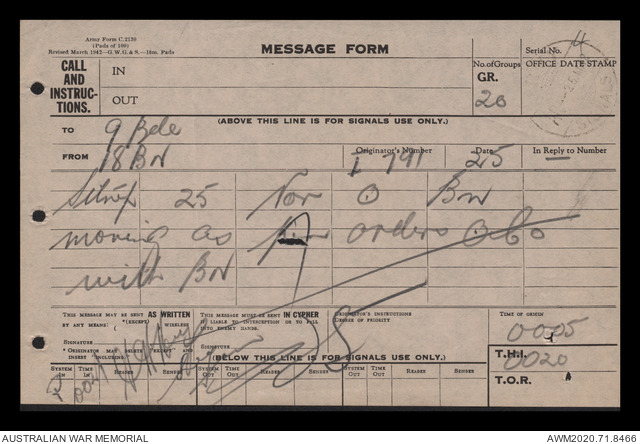 Army Form C.2136
(Pads of 100)
Revised March 1942—G.W.G.&S.—16m. Pads
MESSAGE FORM
Serial No. 4
CALL AND INSTRUC-TIONS.
IN
OUT
No. of Groups
GR.
20
OFFICE DATE STAMP
(ABOVE THIS LINE IS FOR SIGNALS USE ONLY.)
TO 9 Bde
FROM 18 BN
Originator's Number
I 791
Date
25
In Reply to Number
—
Sitrep 25 Nov O Bn
moving as per orders obo
with BN
THIS MESSAGE MAY BE SENT AS WRITTEN
BY ANY MEANS. (EXCEPT) WIRELESS
THIS MESSAGE MUST BE SENT IN CYPHER
IF LIABLE TO INTERCEPTION OR TO FALL
INTO ENEMY HANDS.
ORIGINATOR'S INSTRUCTIONS
DEGREE OF PRIORITY
TIME OF ORIGIN
0005
SIGNATURE
SIGNATURE
(BELOW THIS LINE IS FOR SIGNALS USE ONLY.)
T.H.I.
0020
SYSTEM IN
TIME IN
READER
SENDER
SYSTEM OUT
TIME OUT
READER
SENDER
SYSTEM OUT
TIME OUT
READER
SENDER
T.O.R.
AUSTRALIAN WAR MEMORIAL
AWM2020.71.8466